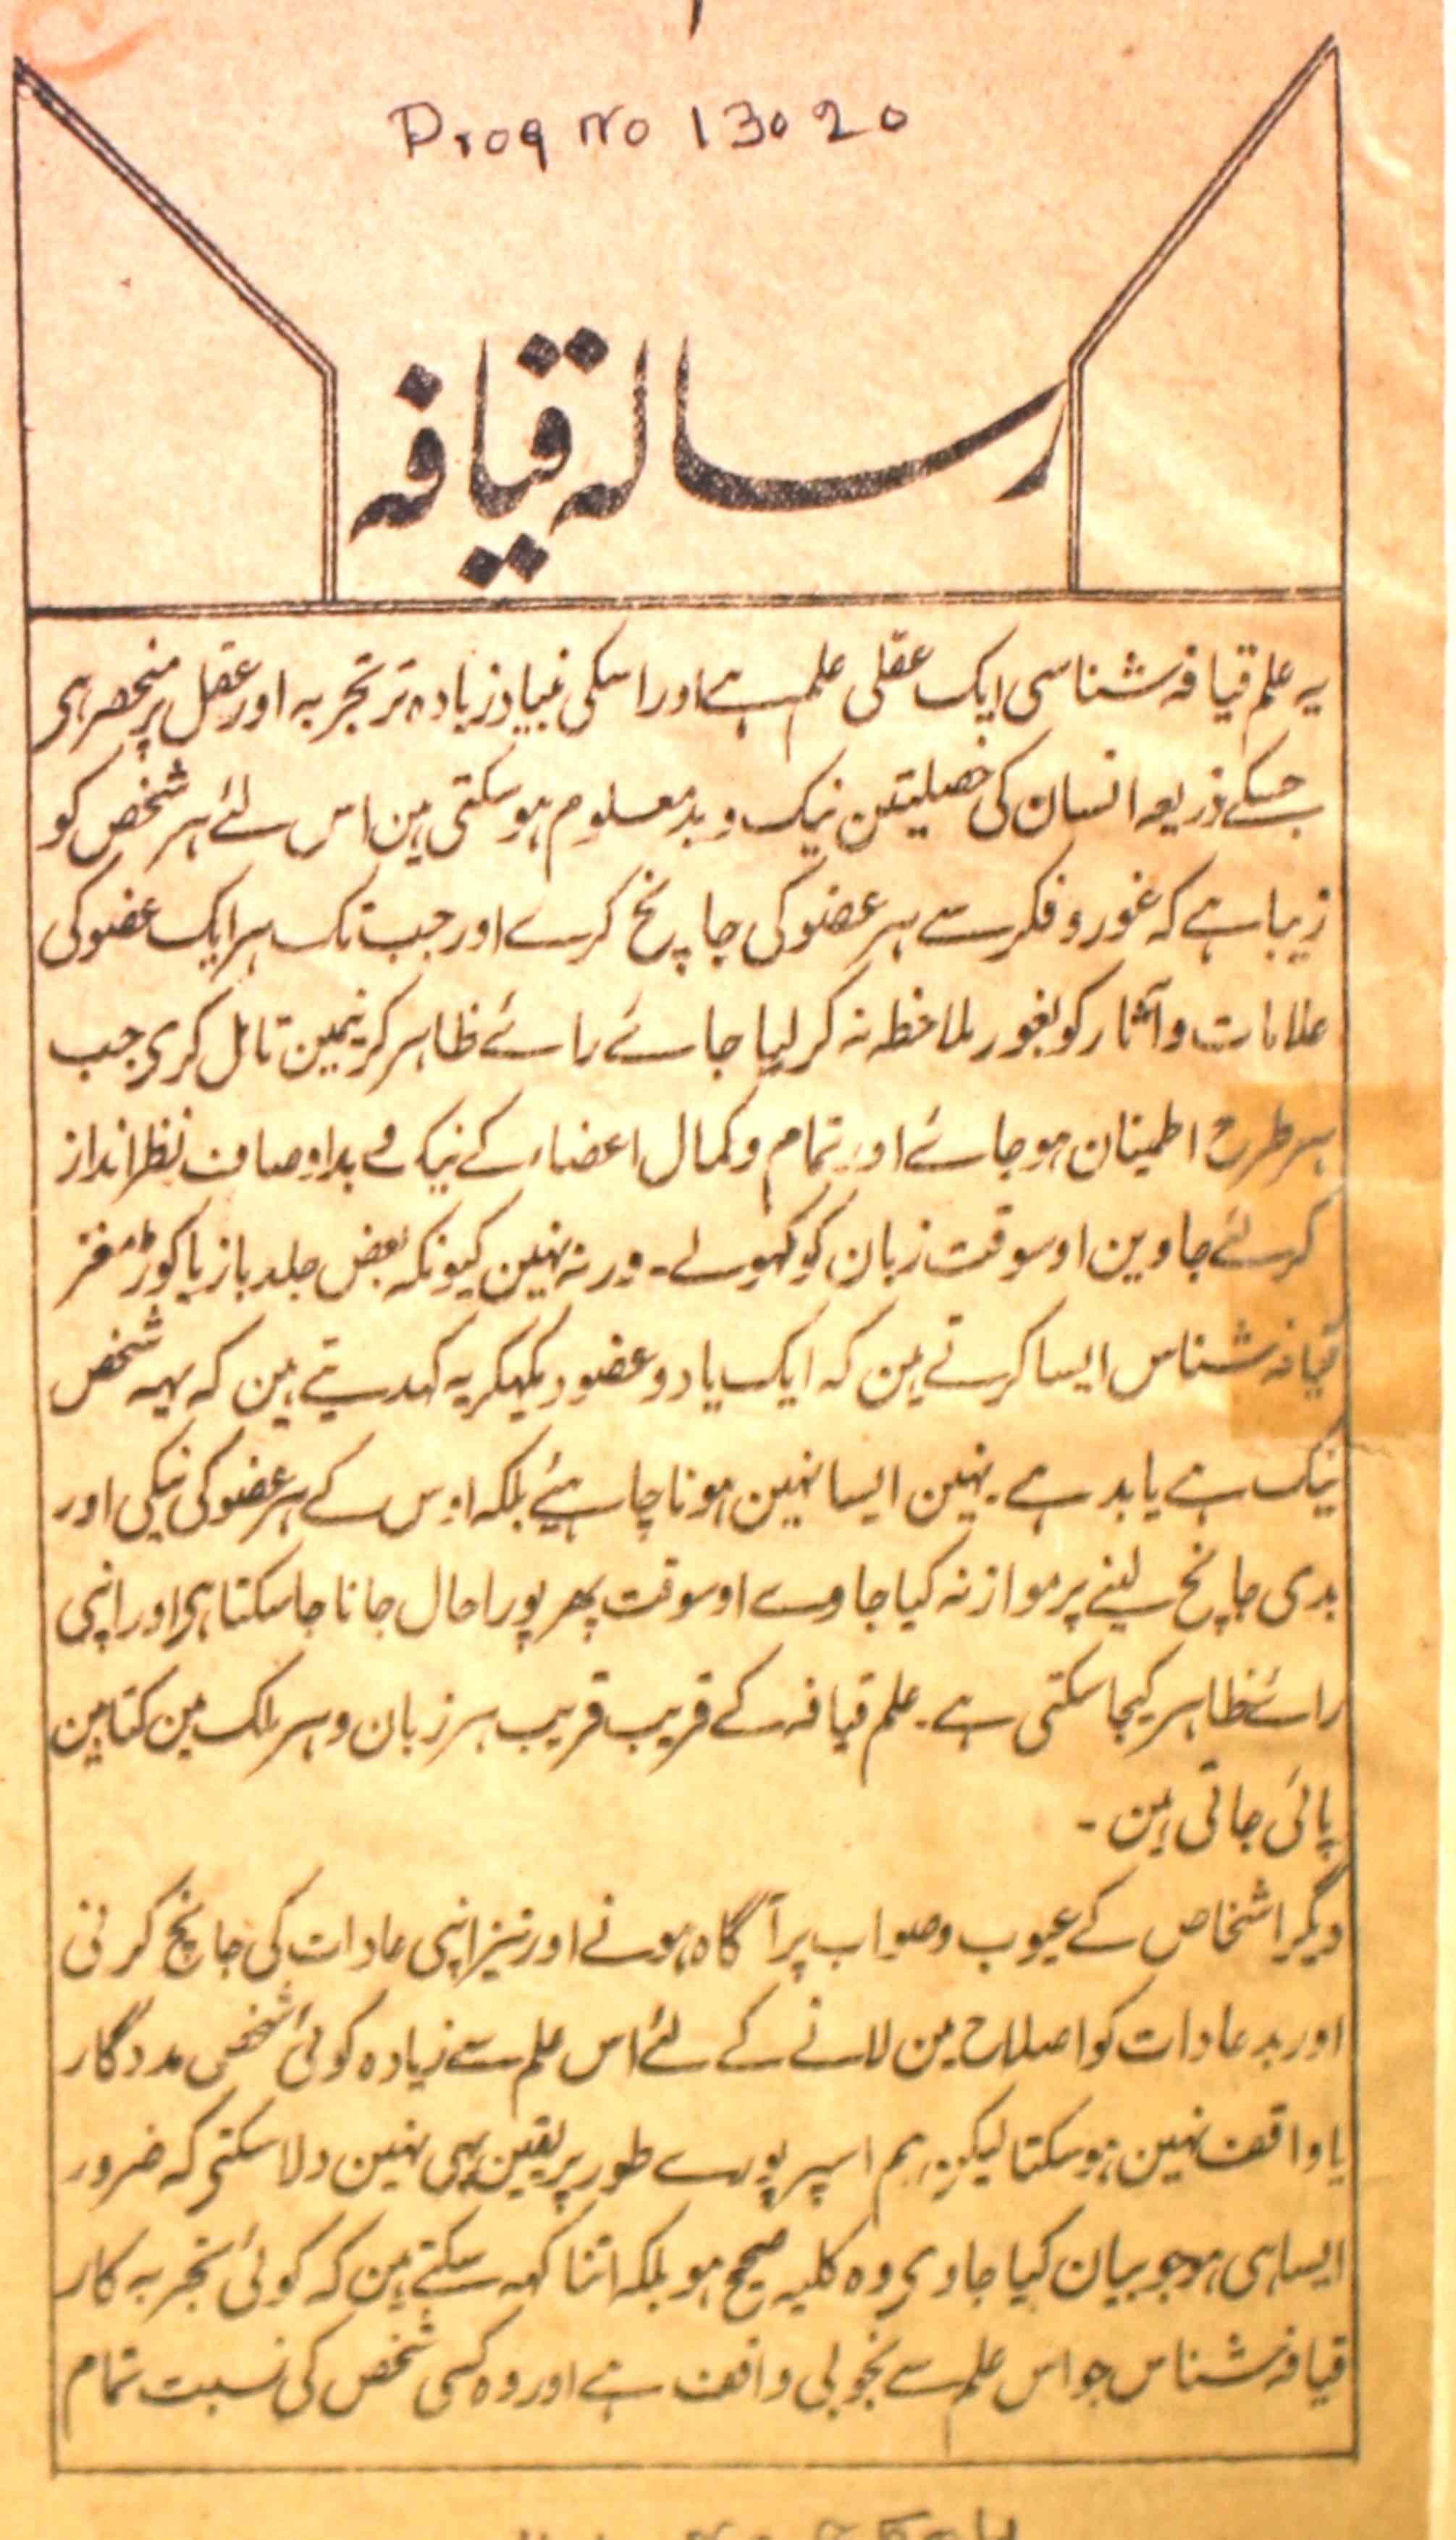 ۱
Proq No 13020
رسالہ قیافہ
یہ علم قیافہ شناسی ایک عقلی علم ہے اور اسکی بنیاد زیادہ تر تجربہ اور عقل پر منحصر ہی
جسکے ذریعہ انسان کی خصلیتین نیک و بد معلوم ہوسکتی ہین اس لئے ہر شخص کو
زیبا ہے کہ غور و فکر سے ہر عضو کی جانچ کرے اور جب تک ہر ایک عضو کی
علامات و آثار کو بغور ملاحظہ نہ کرلیا جائے رائے ظاہر کرنیمین تامل کری جب
ہر طرح اطمینان ہوجائے اور تمام و کمال اعضاء کے نیک و بد اوصاف نظر انداز
کرلئے جاوین اوسوقت زبان کو کھولے۔ ورنہ نہین کیونکہ بعض جلد باز یا کوڑ مغز
قیافہ شناس ایسا کرتے ہین کہ ایک یا دو عضو دیکھکر یہ کہدیتے ہین کہ یہہ شخص
نیک ہے یا بد ہے۔ نہین ایسا نہین ہونا چاہیئے بلکہ اوس کے ہر عضو کی نیکی اور
بدی جانچ لینے پر موازنہ کیا جاوے اوسوقت پھر پورا حال جانا جاسکتا ہی اور اپنی
رائے ظاہر کیجاسکتی ہے۔ علم قیافہ کے قریب قریب ہر زبان و ہر ملک مین کتابین
پائی جاتی ہین۔
دیگر اشخاص کے عیوب و صواب پر آگاہ ہونے اور نیز اپنی عادات کی جانچ کرنی
اور بد عادات کو اصلاح مین لانے کے لئے اس علم سے زیادہ کوئی شخص مددگار
یا واقف نہین ہوسکتا لیکن ہم اسپر پورے طور پر یقین بہی نہین دلا سکتی کہ ضرور
ایسا ہی ہو جو بیان کیا جاوی وہ کلیہ صحیح ہو بلکہ اتنا کہہ سکتے ہین کہ کوئی تجربہ کار
قیافہ شناس جو اس علم سے بخوبی واقف ہے اور وہ کسی شخص کی نسبت تمام